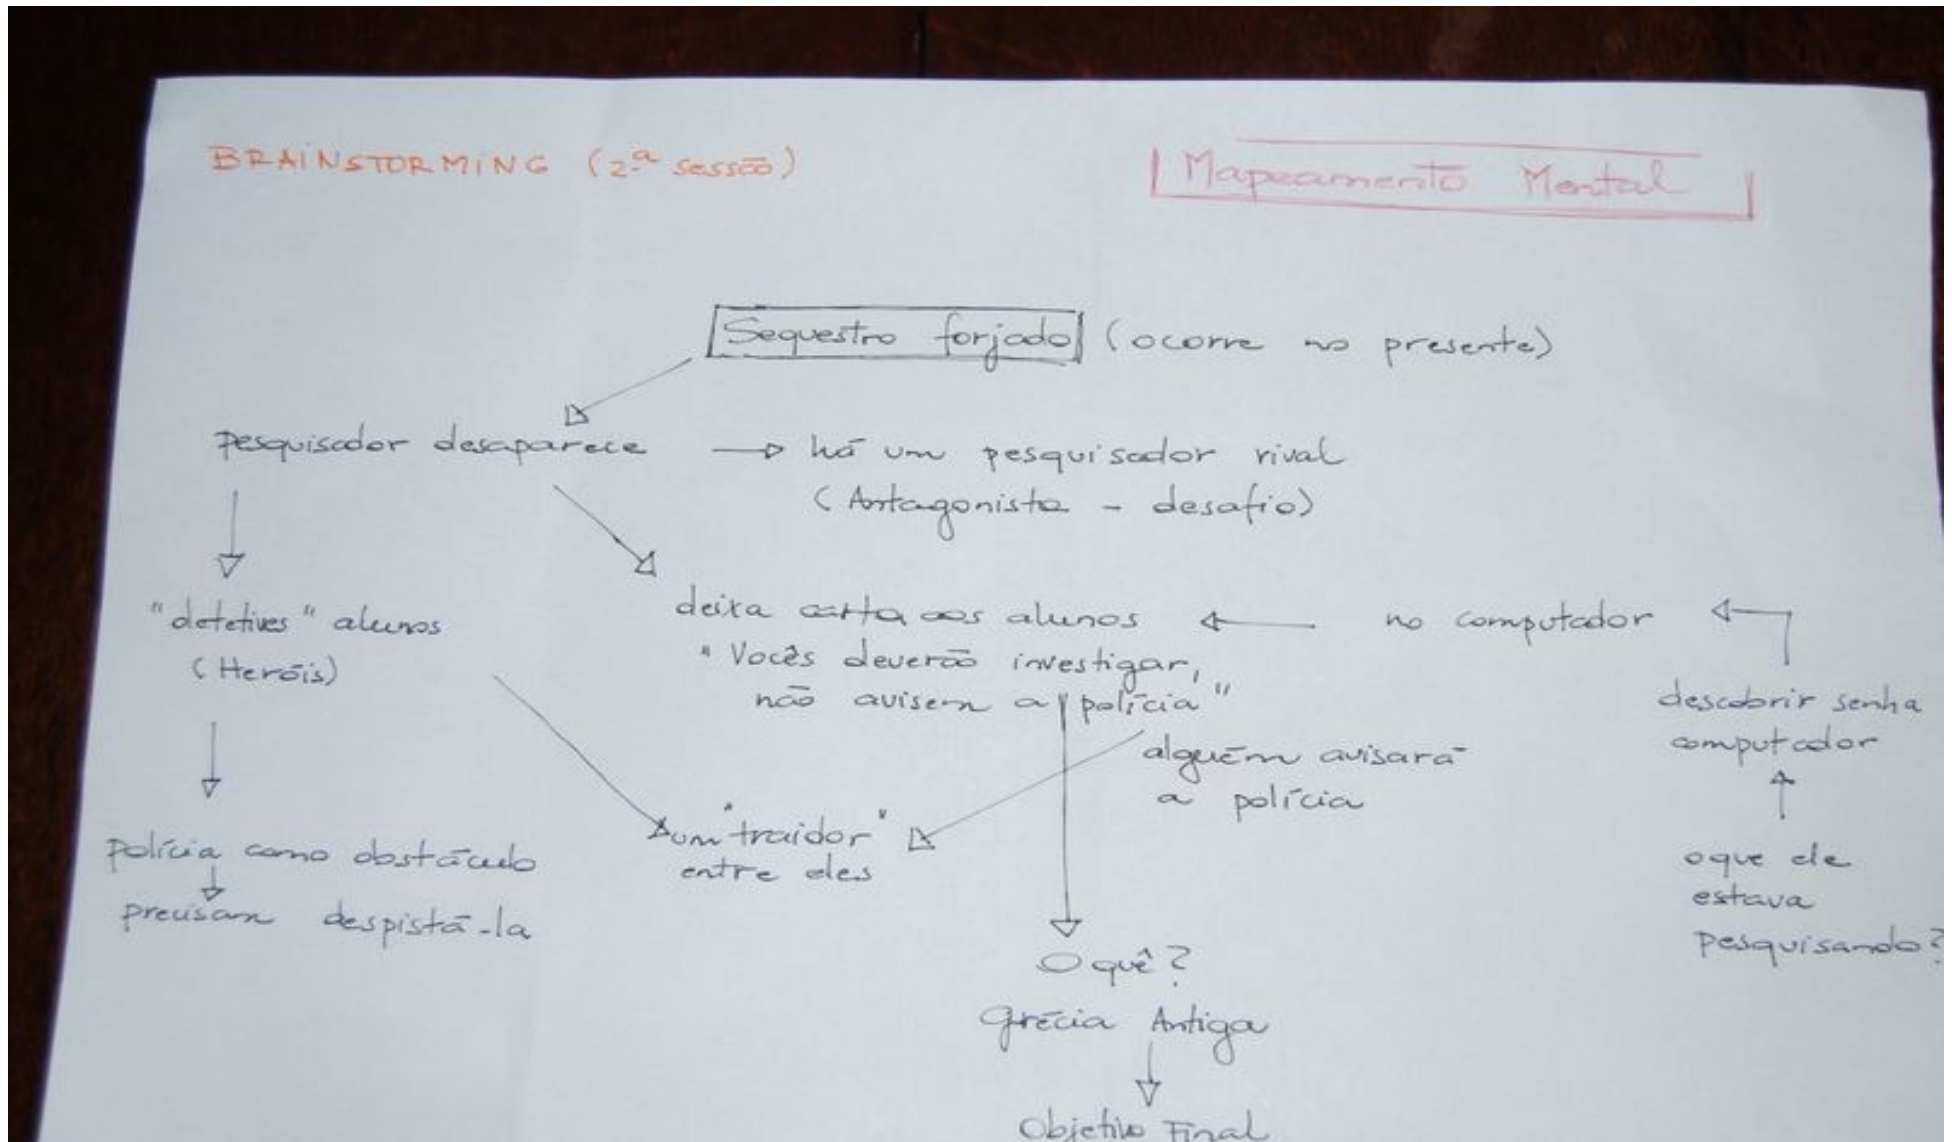 BRAINSTORMING (2ª sessão)
Mapeamento Mental
Sequestro forjado (ocorre no presente)
pesquisador desaparece
há um pesquisador rival
(Antagonista - desafio)
"detetives" alunos
(Heróis)
deixa carta aos alunos
"Vocês deverão investigar,
não avisem a polícia"
no computador
descobrir senha
computador
alguém avisará
a polícia
um "traidor"
entre eles
polícia como obstáculo
precisam despistá-la
o que ele
estava
pesquisando?
O quê?
Grécia Antiga
Objetivo Final